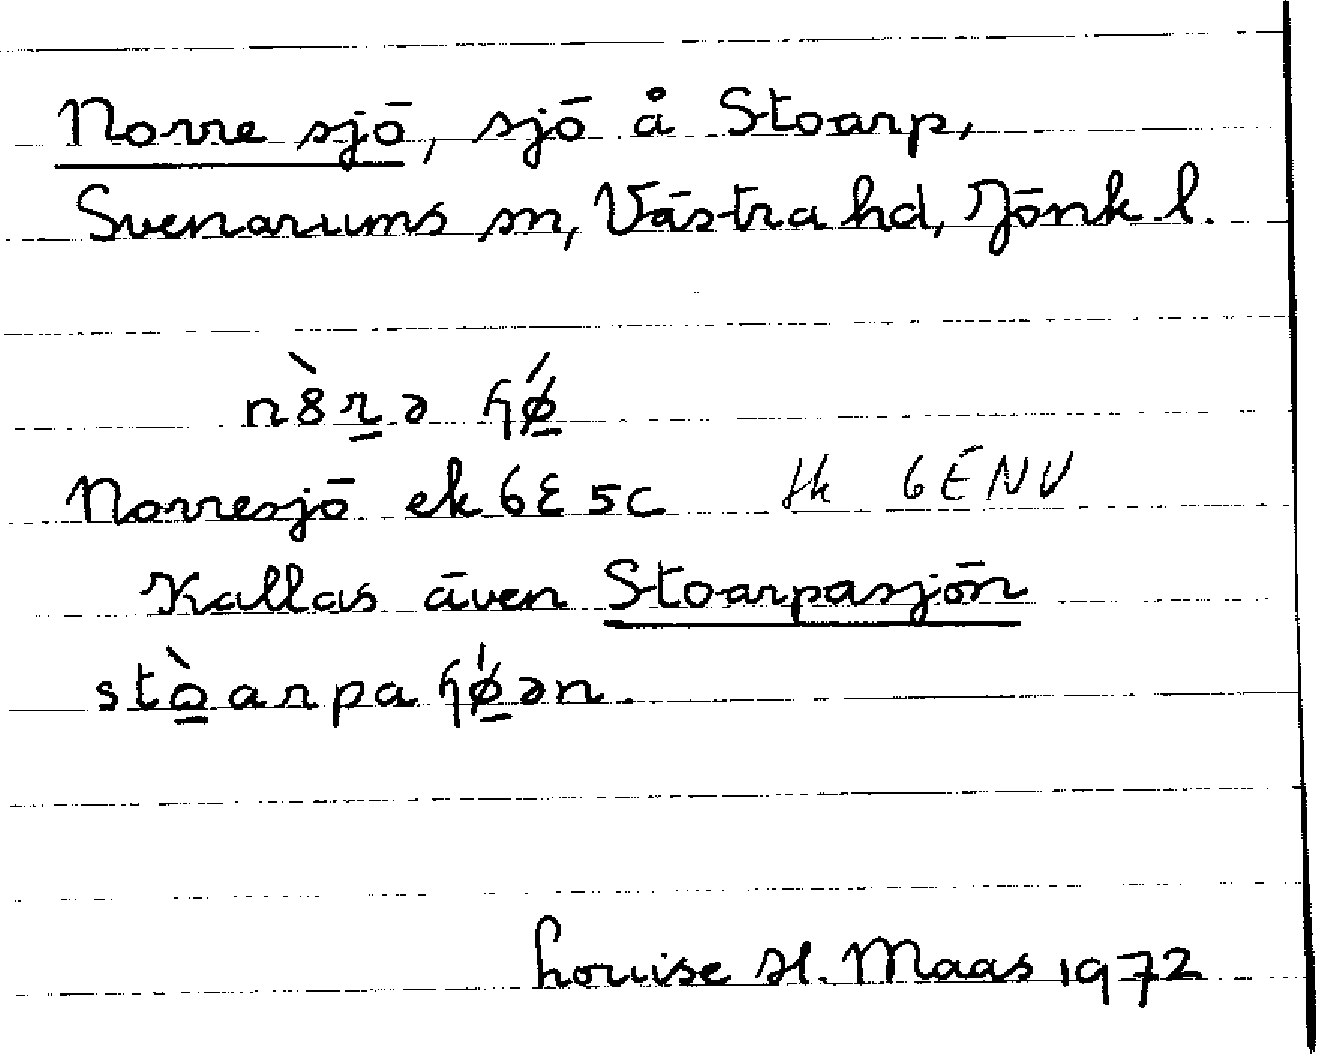 Norre sjö, sjö å Stoarp,
Svenarums sn, Västra hd, Jönk l.
Norresjö ek 6E5c fk 6E NV
Kallas även Stoarpasjön
Louise H. Maas 1972